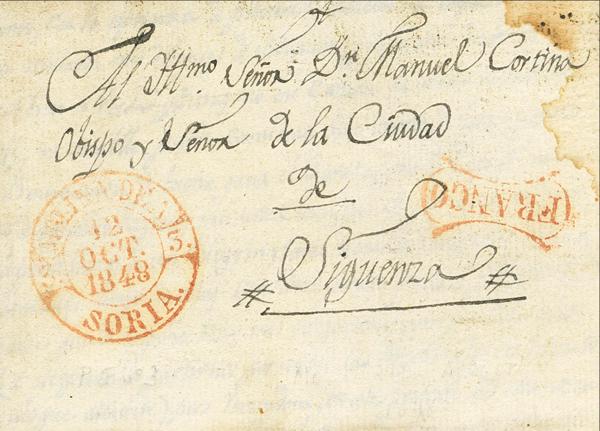 Al Yllmo Señor Dn Manuel Cortina
Obispo y Señor de la Ciudad
de
Siguenza
12
OCT.
1848
SORIA.
FRANCO